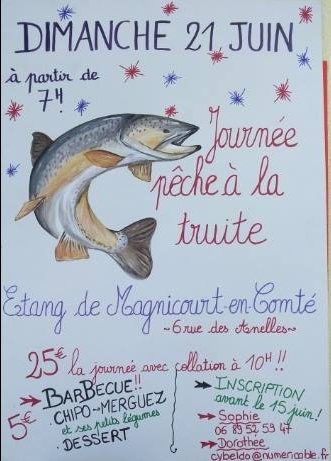 DIMANCHE 21 JUIN
à partir de
7H
Journée
pêche à la
truite
Etang de Magnicourt-en-Comté
~6 rue des Anelles~
25€ la journée avec collation à 10H!!
5€ → BARBECUE!!
. CHIPO~MERGUEZ
et ses petits légumes
. DESSERT
→ INSCRIPTION
avant le 15 juin!
→ Sophie
06 89 52 59 47
→ Dorothée
cybeldo@numericable.fr